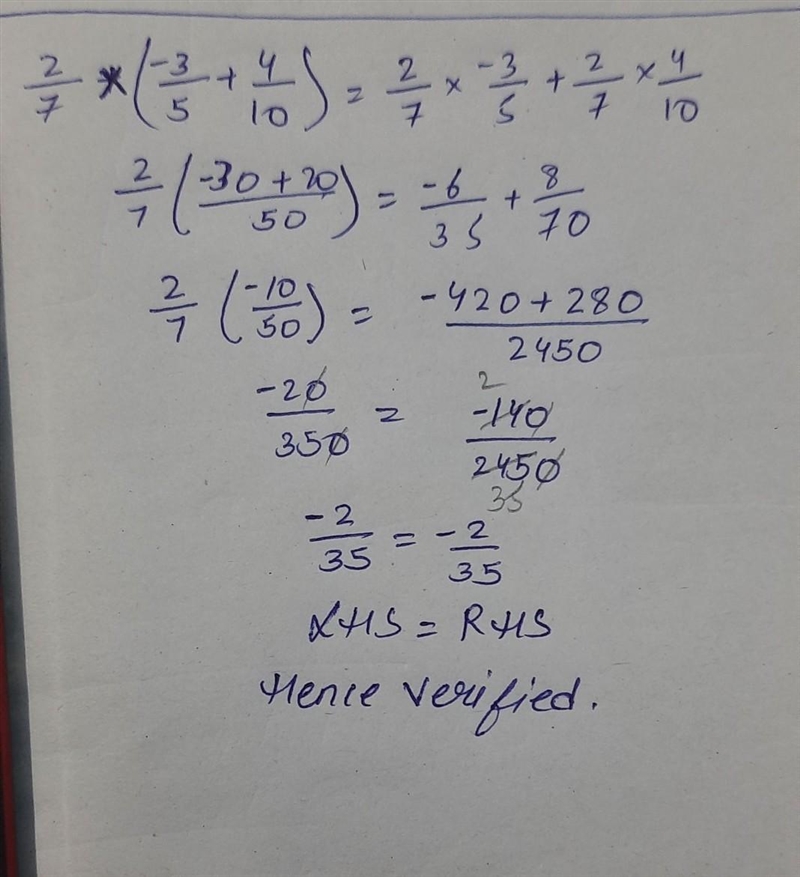 2/7 × (-3/5 + 4/10) = 2/7 × -3/5 + 2/7 × 4/10
2/7 (-30 + 20/50) = -6/35 + 8/70
2/7 (-10/50) = -420 + 280/2450
-20/350 = 2 -140/2450 35
-2/35 = -2/35
LHS = RHS
Hence verified.